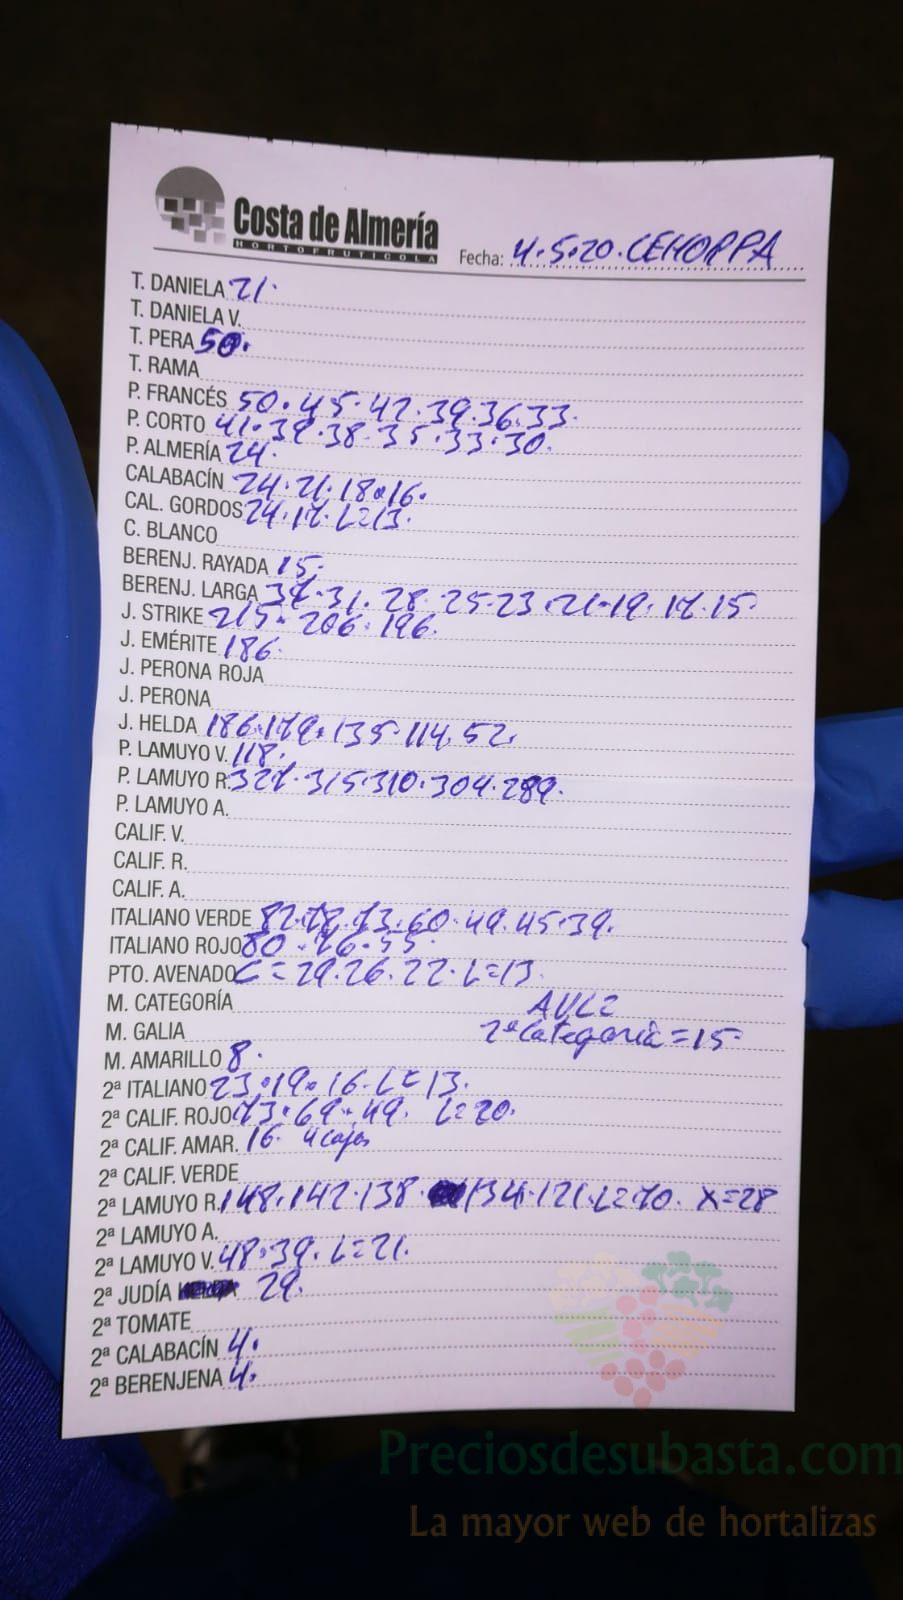 Costa de Almería
HORTOFRUTICOLA
Fecha: 4.5.20. CEHORPA
T. DANIELA 21.
T. DANIELA V.
T. PERA 50.
T. RAMA
P. FRANCÉS 50. 45. 42. 39. 36. 33.
P. CORTO 41. 39. 38. 35. 33. 30.
P. ALMERÍA 24.
CALABACÍN 24. 21. 18. 16.
CAL. GORDOS 24. 17. L=13.
C. BLANCO
BERENJ. RAYADA 15.
BERENJ. LARGA 37. 31. 28. 25. 23. 21. 19. 17. 15
J. STRIKE 215. 206. 196.
J. EMÉRITE 186.
J. PERONA ROJA
J. PERONA
J. HELDA 186. 179. 135. 114. 52.
P. LAMUYO V. 118.
P. LAMUYO R. 327. 315. 310. 304. 289.
P. LAMUYO A.
CALIF. V.
CALIF. R.
CALIF. A.
ITALIANO VERDE 82. 78. 73. 60. 49. 45. 39.
ITALIANO ROJO 80. 76. 55.
PTO. AVENADO C=29. 26. 22. L=13.
M. CATEGORÍA
M. GALIA
2ª Categoria = 15
M. AMARILLO 8.
2ª ITALIANO 23. 19. 16. L=13.
2ª CALIF. ROJO 73. 69. 49. L=20.
2ª CALIF. AMAR. 16. 4 cajas
2ª CALIF. VERDE
2ª LAMUYO R. 148. 142. 138. 134. 121. L=70. X=28
2ª LAMUYO A.
2ª LAMUYO V. 48. 39. L=21.
2ª JUDÍA 29.
2ª TOMATE
2ª CALABACÍN 4.
2ª BERENJENA 4.
Preciosdesubasta.com
La mayor web de hortalizas